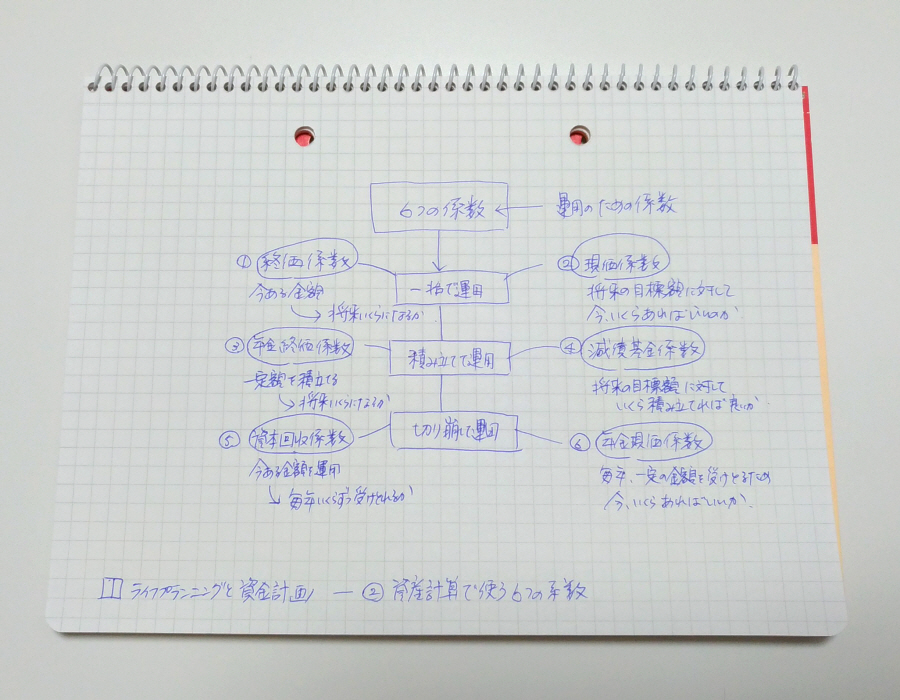 6つの係数
運用のための係数
① 終価係数
今ある金額
将来いくらになるか
一括で運用
② 現価係数
将来の目標額に対して
今、いくらあればいいのか
③ 年金終価係数
一定額を積立てる
将来いくらになるか
積み立てて運用
④ 減債基金係数
将来の目標額に対して
いくら積み立てれば良いか.
⑤ 資本回収係数
今ある金額を運用
毎年いくらずつ受けとれるか
切り崩して運用
⑥ 年金現価係数
毎年、一定の金額を受けとるため
今、いくらあればいいか.
I ライフプランニングと資金計画 ― ② 資産計算で使う6つの係数